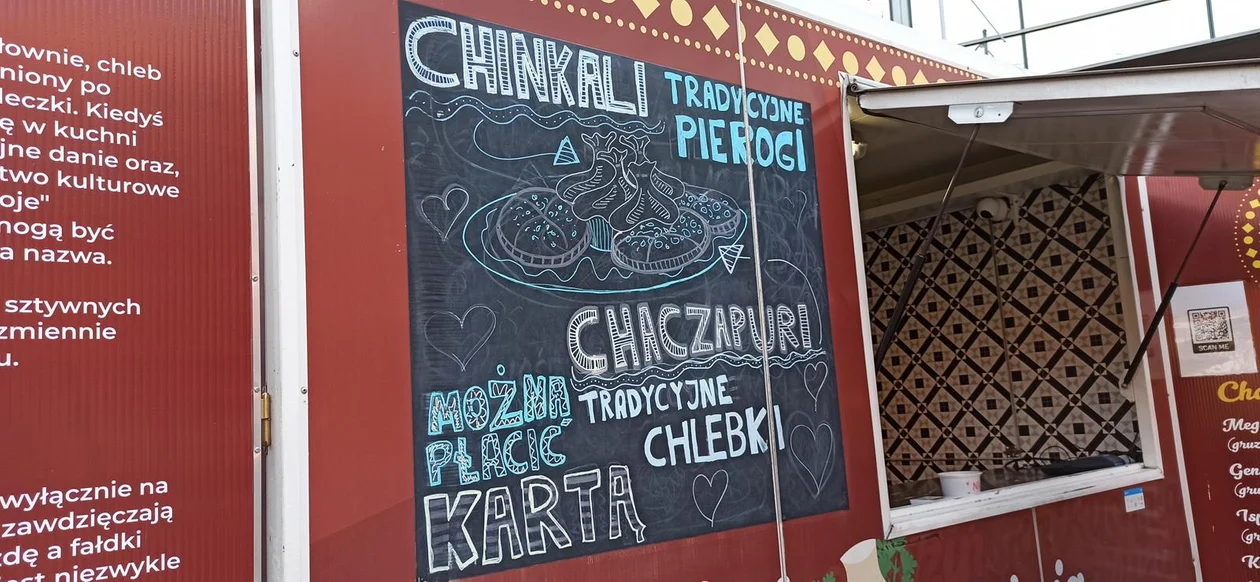 łownie, chleb
niony po
leczki. Kiedyś
ę w kuchni
jne danie oraz,
two kulturowe
oje"
mogą być
a nazwa.
sztywnych
zmiennie
u.
wyłącznie na
zawdzięczają
zdę a fałdki
est niezwykle
CHINKALI
TRADYCYJNE
PIEROGI
CHACZAPURI
TRADYCYJNE
CHLEBKI
MOŻNA
PŁACIĆ
KARTĄ
SCAN ME
Cha
Meg
(gruz
Gen
(gru
Isp
(gr